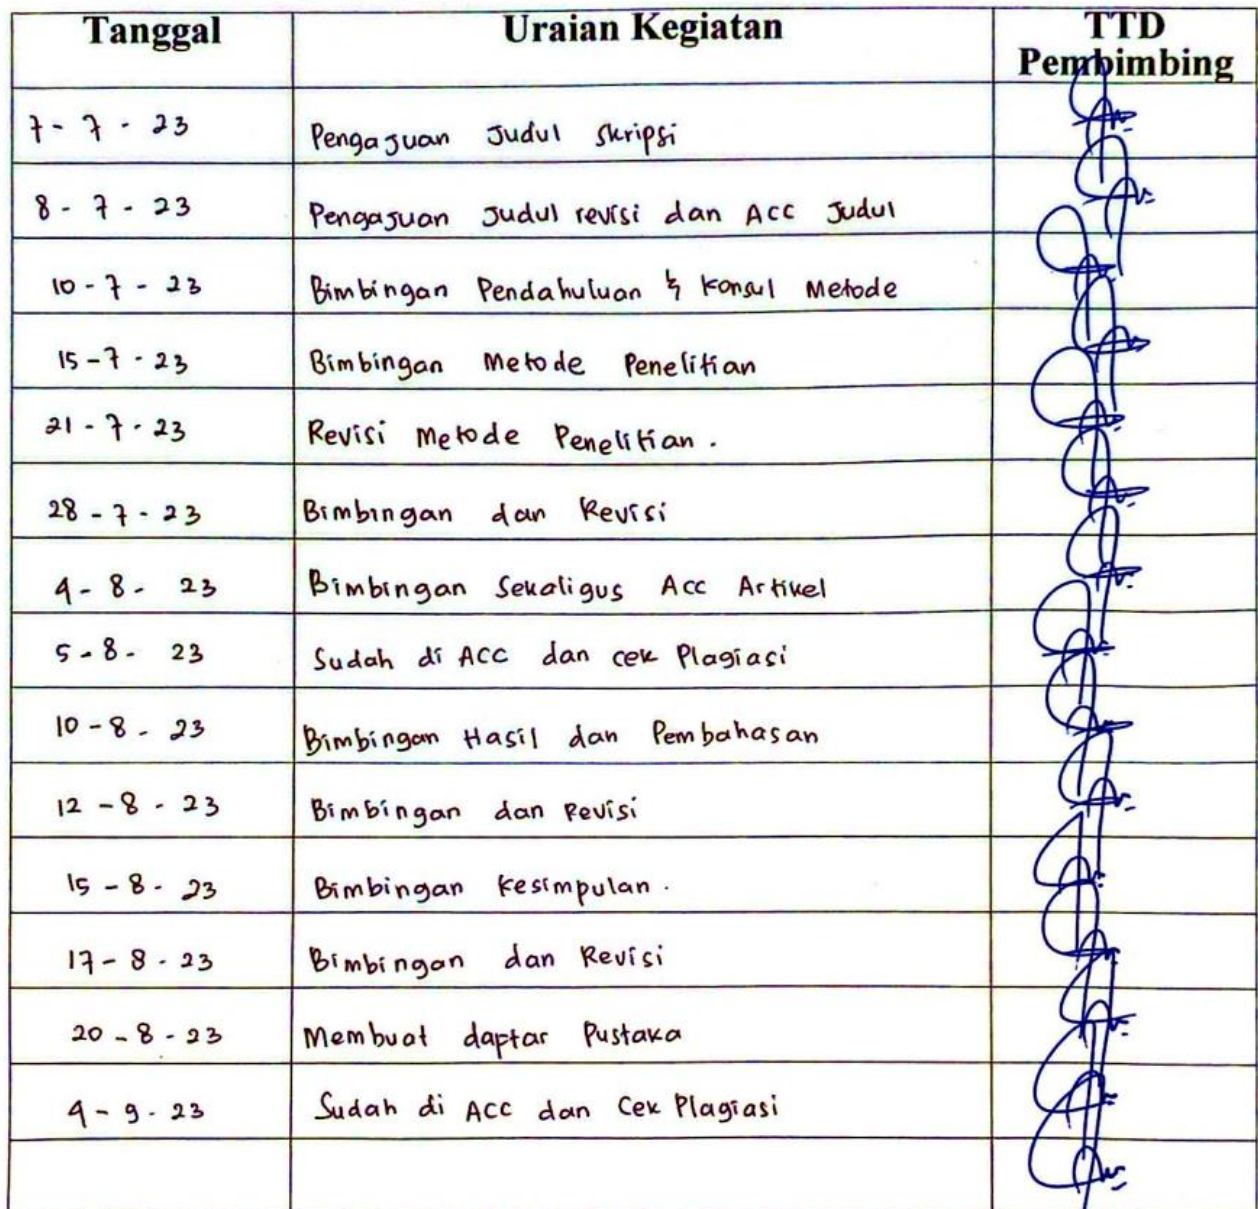 Tanggal Uraian Kegiatan TTD Pembimbing
7 - 7 - 23 Pengajuan Judul Skripsi
8 - 7 - 23 Pengajuan Judul revisi dan ACC Judul
10 - 7 - 23 Bimbingan Pendahuluan & Konsul Metode
15 - 7 - 23 Bimbingan Metode Penelitian
21 - 7 - 23 Revisi Metode Penelitian .
28 - 7 - 23 Bimbingan dan Revisi
4 - 8 - 23 Bimbingan Sekaligus Acc Artikel
5 - 8 - 23 Sudah di ACC dan cek Plagiasi
10 - 8 - 23 Bimbingan Hasil dan Pembahasan
12 - 8 - 23 Bimbingan dan Revisi
15 - 8 - 23 Bimbingan Kesimpulan .
17 - 8 - 23 Bimbingan dan Revisi
20 - 8 - 23 Membuat daptar Pustaka
4 - 9 - 23 Sudah di ACC dan Cek Plagiasi